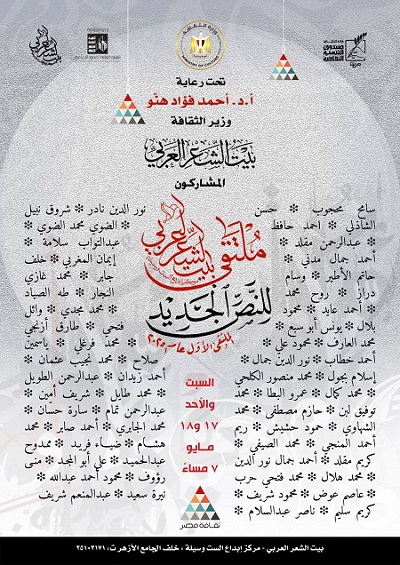 تحت رعاية
أ.د. أحمد فؤاد هنّو
وزير الثقافة
بيت الشعر العربي
المشاركون
سامح محجوب * حسن
الشاذلي * أحمد حافظ
* عبدالرحمن مقلد *
أحمد جمال مدني *
حاتم الأطير * وسام
دراز * روح محمد
* أحمد عابد * محمود
بلال * يونس أبو سبع *
محمد العارف * محمود علي *
أحمد حطاب * نور الدين جمال *
إسلام بجول * محمد منصور الكلحي
* محمد كمال * عمرو البطا * محمد
توفيق لبن * حازم مصطفى * محمد
الشهاوي * حمود حشيش * ريم
أحمد المنجي * محمد الصيفي *
كريم مقلد * أحمد جمال نور الدين
* محمد هلال * محمد فتحي حرب
* عاصم عوض * محمود شريف *
كريم سليم * ناصر عبدالسلام *
نور الدين نادر * شروق نبيل
* الضوي محمد الضوي *
عبدالتواب سلامة *
إيمان المغربي * خلف
جابر * محمد غازي
النجار * طه الصياد
* محمد مجدي * وائل
فتحي * طارق أزنجي
* محمد فرغلي * ياسمين
صلاح * محمد نجيب عثمان *
أحمد زيدان * عبدالرحمن الطويل
* محمد طايل * شريف أمين *
عبدالرحمن تمام * سارة حسان *
محمد الجابري * أحمد صابر * محمد
هشام * ضياء فريد * ممدوح
عبدالحميد * علي أبو المجد * منى
رؤوف * محمود أحمد عبدالله *
نيرة سعيد * عبدالمنعم شريف
ملتقى
بيت الشعر العربي
للنص الجديد
الملتقى الأول عام ٢٠٢٥
السبت
والأحد
١٧ و ١٨
مايو
٧ مساءً
ثقافة مصر
بيت الشعر العربي - مركز إبداع الست وسيلة ، خلف الجامع الأزهر ت: ٢٥١٠٢١٧١